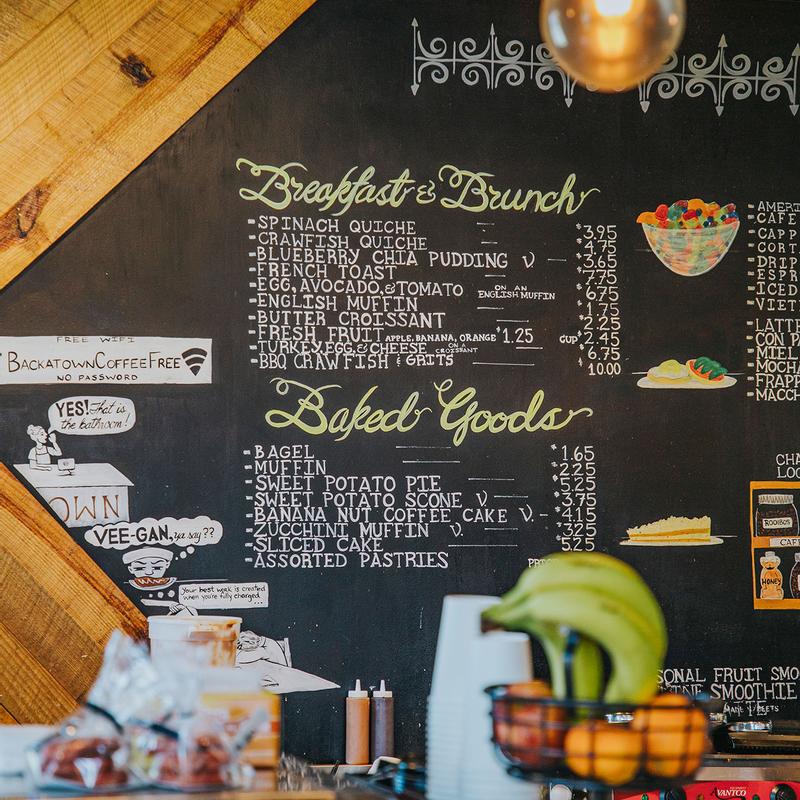 Breakfast & Brunch
-SPINACH QUICHE $3.95
-CRAWFISH QUICHE $4.75
-BLUEBERRY CHIA PUDDING V $3.65
-FRENCH TOAST $7.75
-EGG, AVOCADO, & TOMATO ON AN ENGLISH MUFFIN $6.75
-ENGLISH MUFFIN $1.75
-BUTTER CROISSANT $2.25
-FRESH FRUIT APPLE, BANANA, ORANGE $1.25 CUP $2.45
-TURKEY, EGG, & CHEESE ON A CROISSANT $6.75
-BBQ CRAWFISH & GRITS $10.00
Baked Goods
-BAGEL $1.65
-MUFFIN $2.25
-SWEET POTATO PIE $5.25
-SWEET POTATO SCONE V $3.75
-BANANA NUT COFFEE CAKE V. $4.15
-ZUCCHINI MUFFIN V. $3.25
-SLICED CAKE $5.25
-ASSORTED PASTRIES
FREE WIFI
BACKATOWNCOFFEEFREE
NO PASSWORD
YES! That is
the bathroom!
OWN
VEE-GAN, ya say??
Your best work is created
when you're fully charged...
-AMERI
-CAFE
-CAPP
-CORT
-DRIP
-ESPR
-ICED
-VIET
-LATTE
-CON P
-MIEL
-MOCHA
-FRAPP
-MACCH
CHA
LOO
ROOIBOS
CAFE
HONEY
SONAL FRUIT SMO
SMOOTHIE
VANTCO